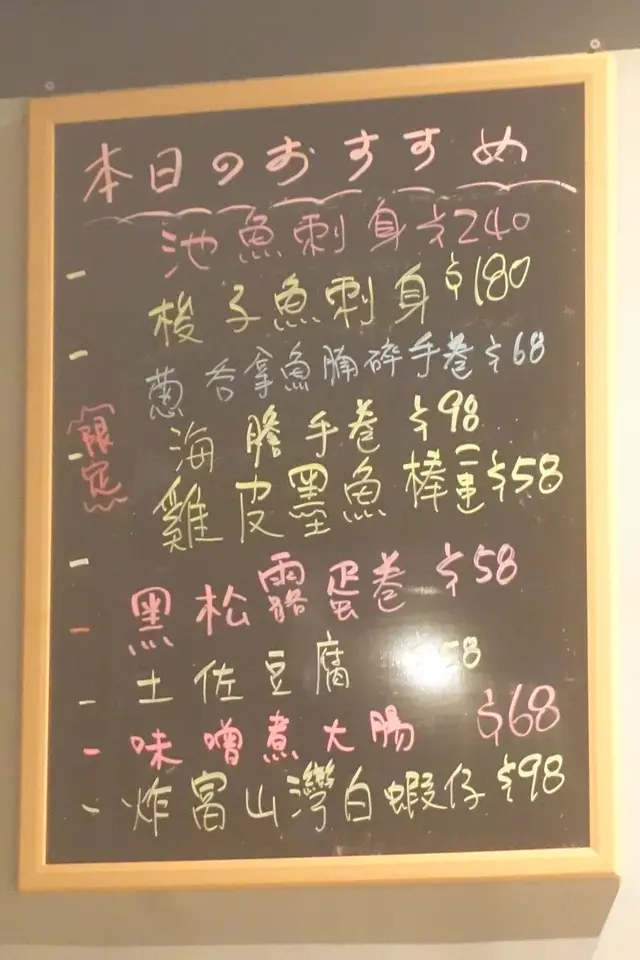 本日のおすすめ
池魚刺身 $240
梭子魚刺身 $180
蔥吞拿魚腩碎手卷 $68
限定
海膽手卷 $98
雞皮墨魚棒(一串) $58
黑松露蛋卷 $58
土佐豆腐 $58
味噌煮大腸 $68
炸富山灣白蝦仔 $98